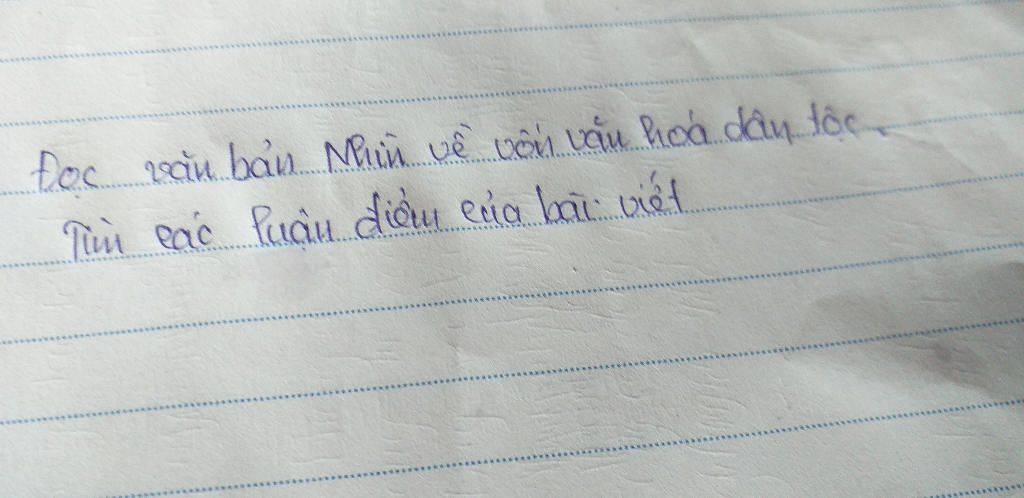 Đọc văn bản Nhìn về vốn văn hoá dân tộc.
Tìm các luận điểm của bài viết